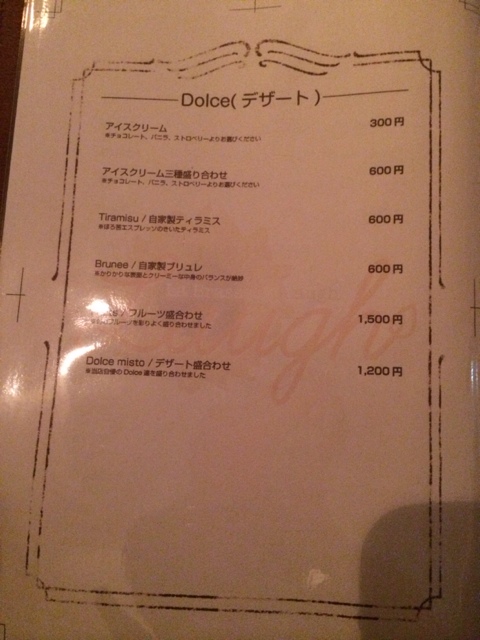 Dolce(デザート)
アイスクリーム 300円
※チョコレート、バニラ、ストロベリーよりお選びください
アイスクリーム三種盛り合わせ 600円
※チョコレート、バニラ、ストロベリーよりお選びください
Tiramisu / 自家製ティラミス 600円
※ほろ苦エスプレッソのきいたティラミス
Brunee / 自家製ブリュレ 600円
※かりかりな表面とクリーミーな中身のバランスが絶妙
/ フルーツ盛合わせ 1,500円
フルーツを彩りよく盛り合わせました
Dolce misto / デザート盛合わせ 1,200円
※当店自慢の Dolce 達を盛り合わせました